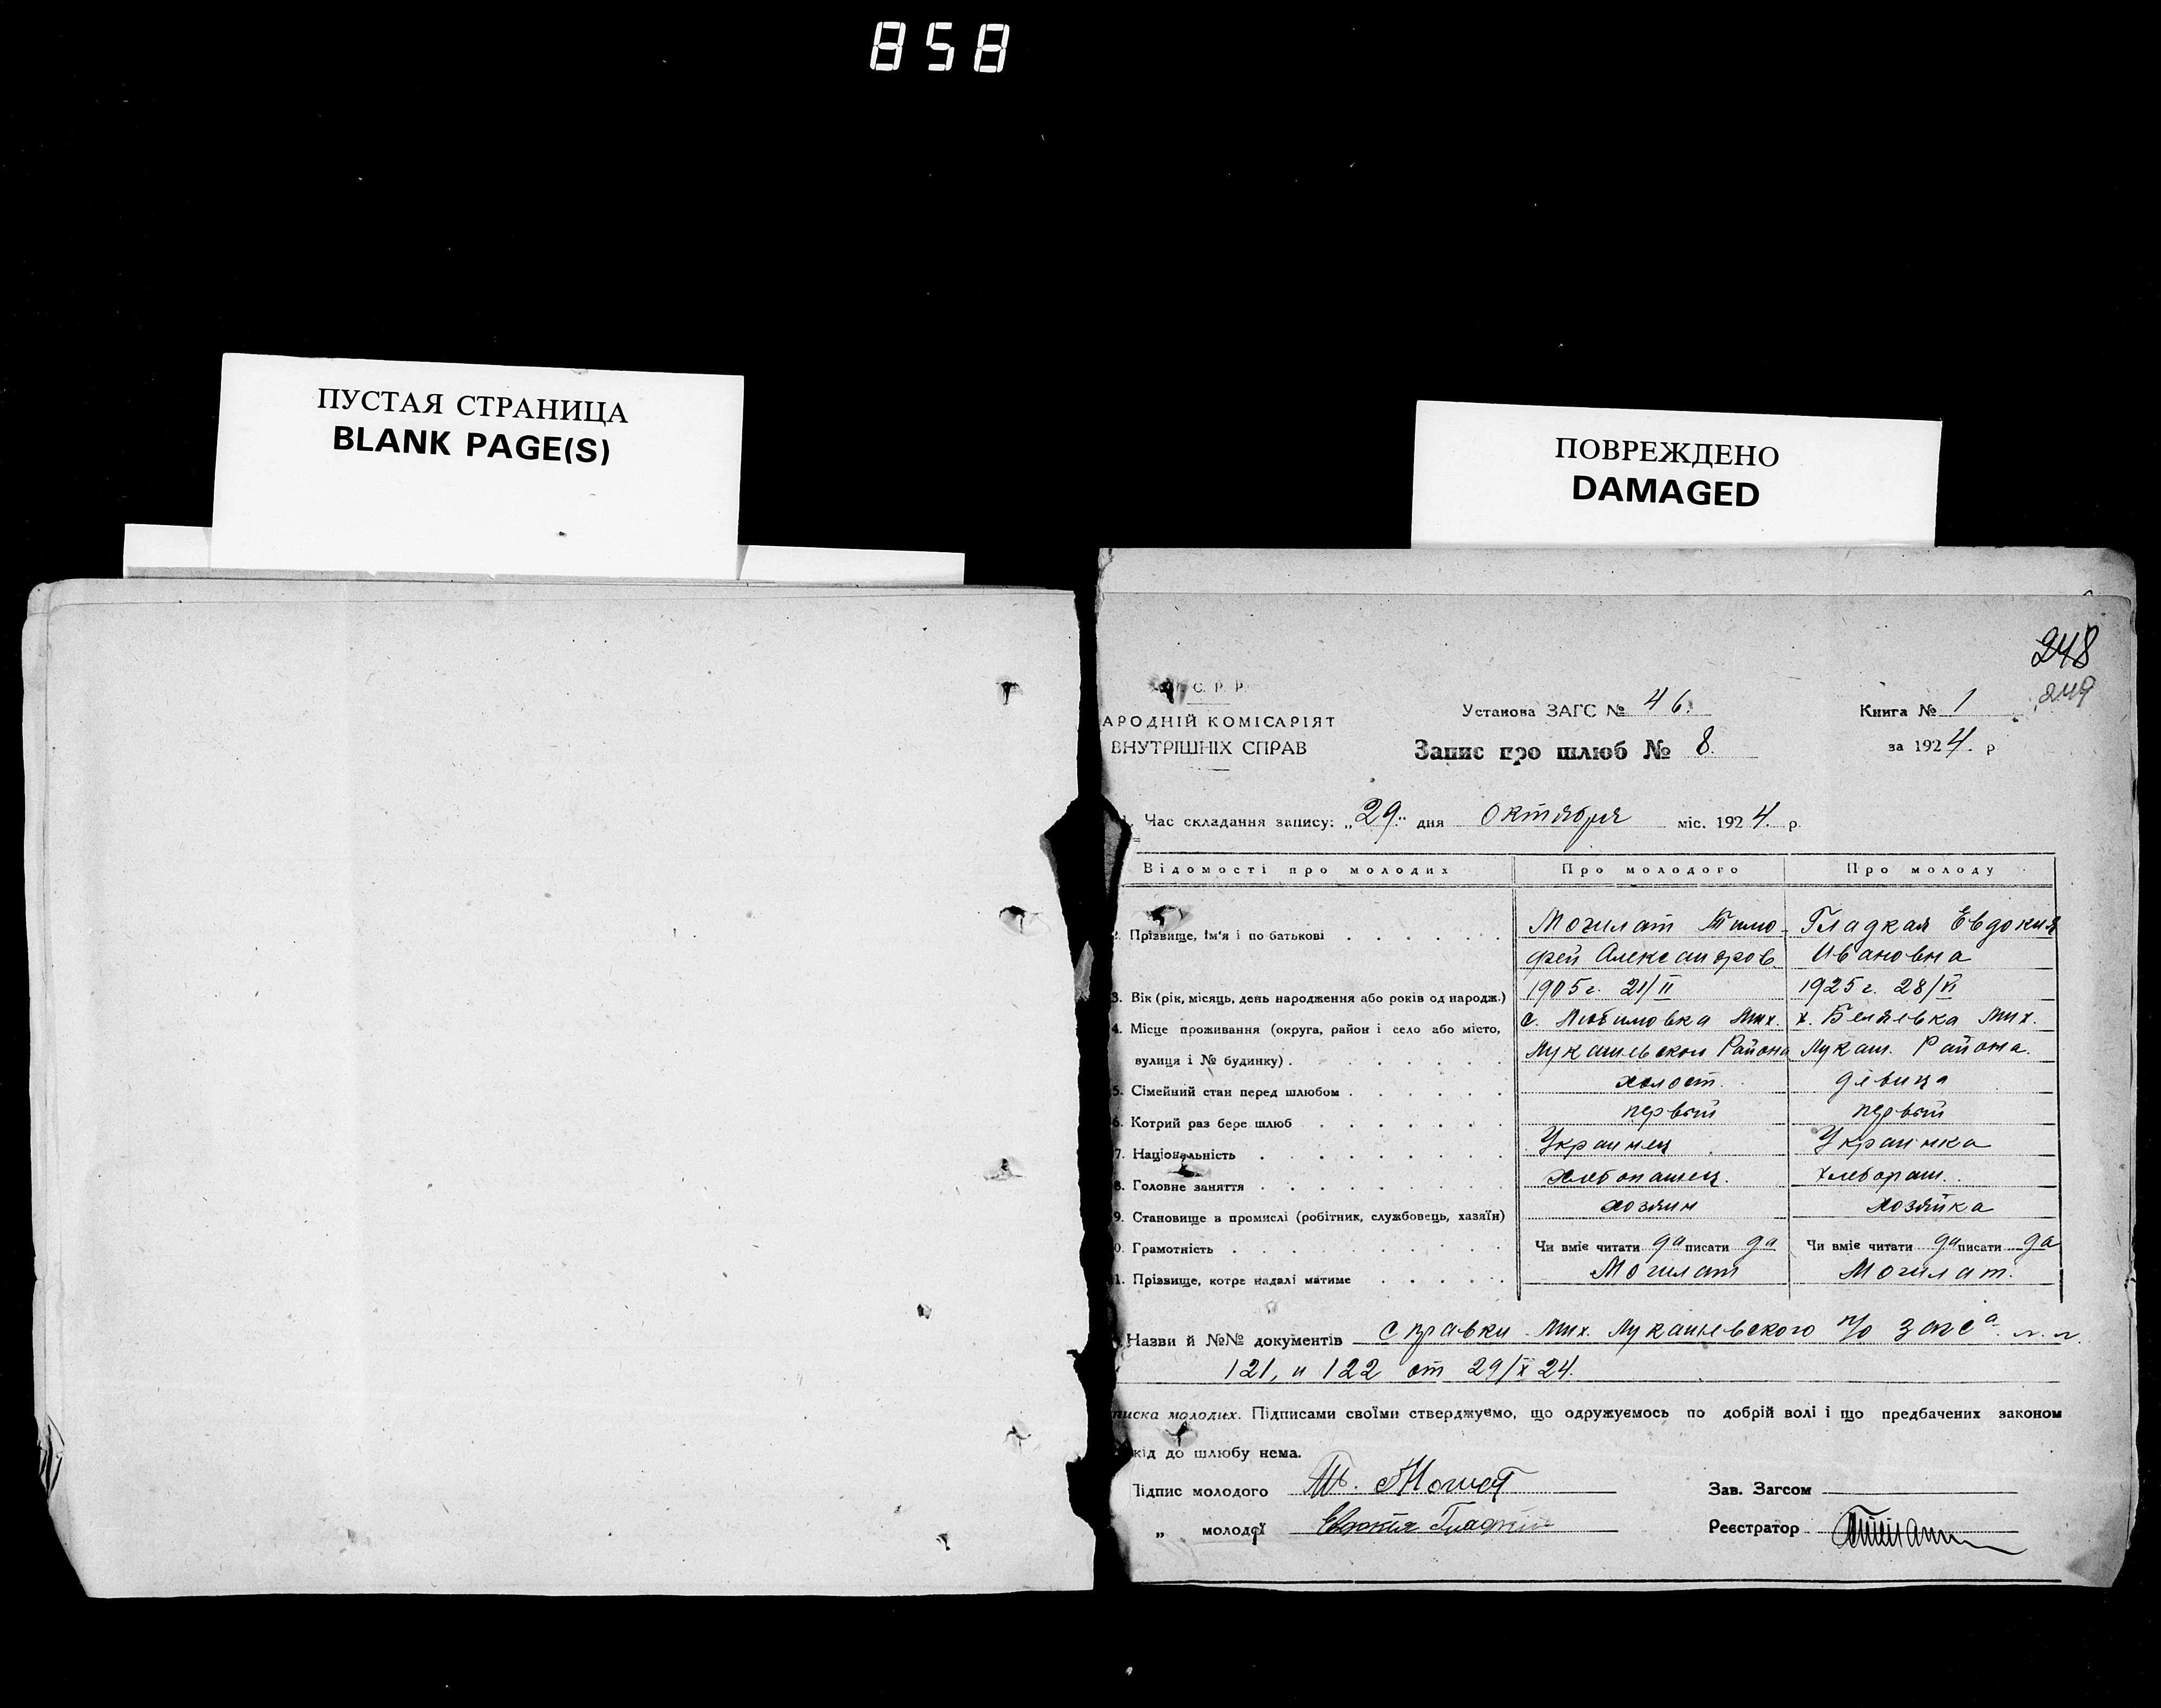 858
ПУСТАЯ СТРАНИЦА
BLANK PAGE(S)
ПОВРЕЖДЕНО
DAMAGED
248
249
С. Р. Р.
АРОДНІЙ КОМІСАРІЯТ
ВНУТРІШНІХ СПРАВ
Установа ЗАГС № 46.
Книга № 1
Запис про шлюб № 8.
за 1924 р
1. Час складання запису: „29" дня октября міс. 1924. р.
Відомості про молодих Про молодого Про молоду
2. Прізвище, ім'я і по батькові Могилат Тимо- Гладкая Евдокия
фей Александров. Ивановна
3. Вік (рік, місяць, день народження або років од народж.) 1905 г. 21/II 1925 г. 28/VI
4. Місце проживання (округа, район і село або місто, с. Любимовка Мих. х. Беляевка Мих.
вулиця і № будинку) Лукашевского Района Лукаш. Района.
5. Сімейний стан перед шлюбом холост. девица
6. Котрий раз бере шлюб первый первый
7. Національність Украинец Украинка
8. Головне заняття хлебопашец. хлебопаш.
9. Становище в промислі (робітник, службовець, хазяїн) хозяин хозяйка
0. Грамотність Чи вміє читати да писати да Чи вміє читати да писати да
1. Прізвище, котре надалі матиме Могилат Могилат.
Назви й №№ документів справки Мих. Лукашевского п/о загса
121, и 122 от 29/X 24.
писка молодих. Підписами своїми стверджуємо, що одружуємось по добрій волі і що предбачених законом
кід до шлюбу нема.
Підпис молодого
Зав. Загсом
„ молодої Евдокія Гладкая
Реєстратор